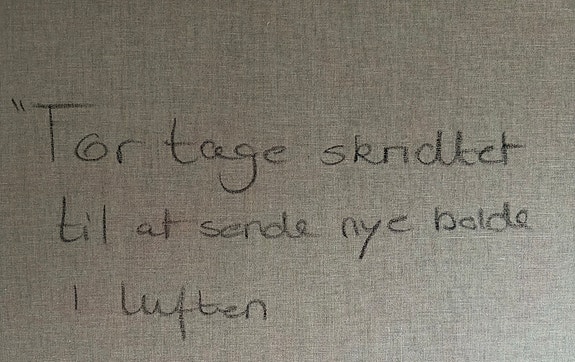 "Tør tage skridtet
til at sende nye bolde
i luften